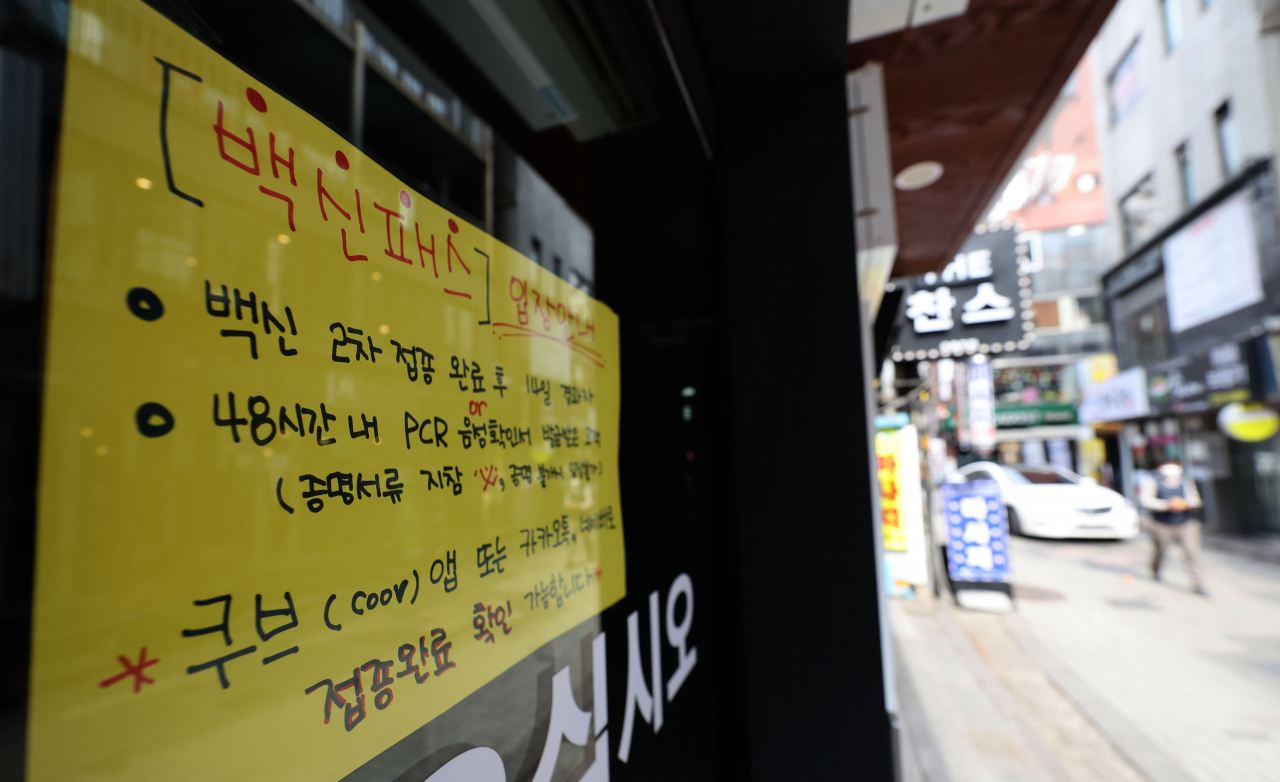 [백신패스] 입장안내
• 백신 2차 접종 완료 후 14일 경과자
or
• 48시간 내 PCR 음성확인서 발급받은 고객
(증명서류 지참 ※, 증명 불가시 입장불가)
* 쿠브 (coov) 앱 또는 카카오톡, 네이버로
접종완료 확인 가능합니다*
십시오
THE
찬스